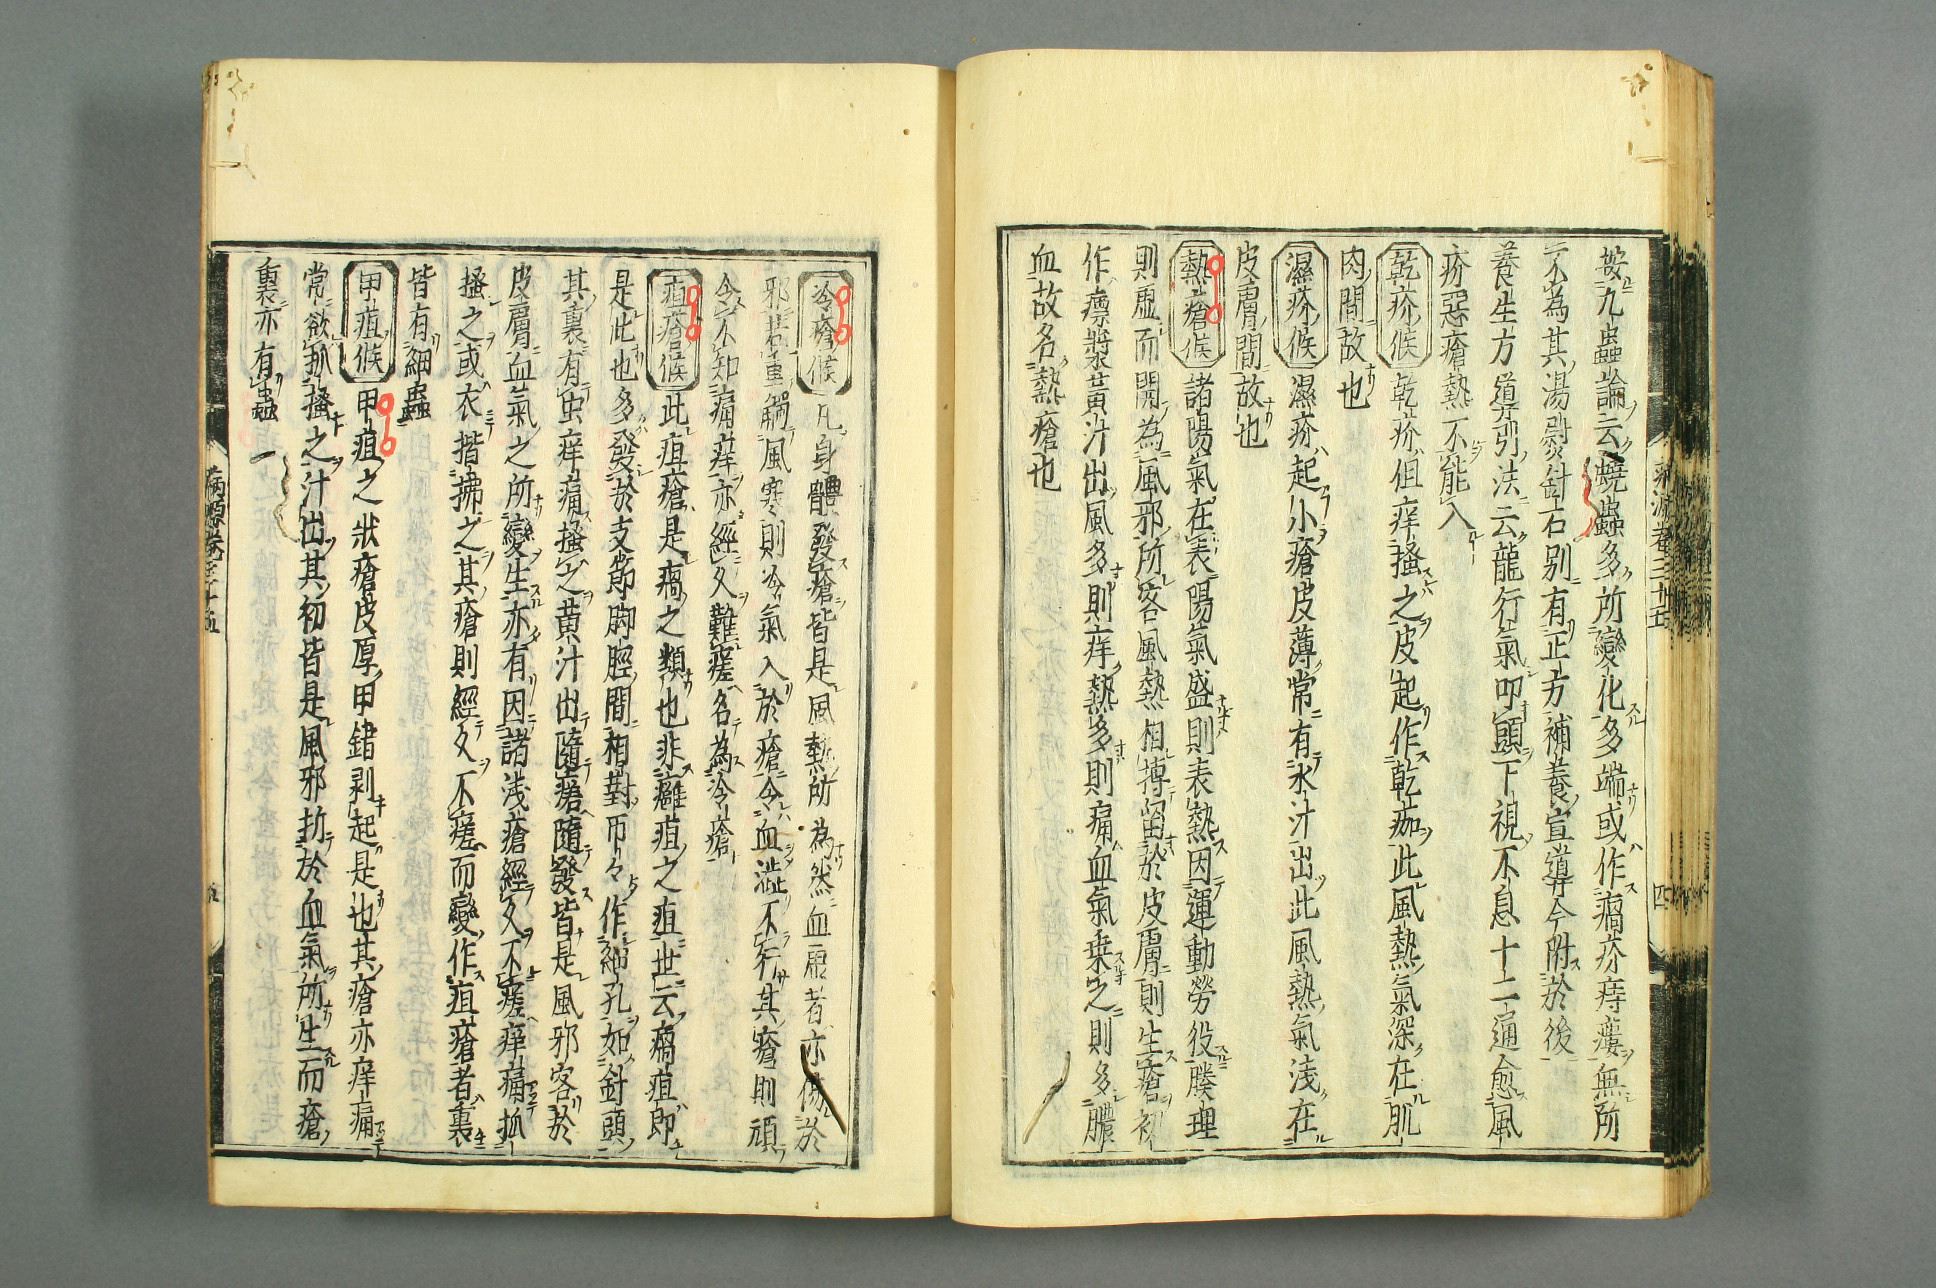 按九蟲論云蟯蟲多所變化多端或作瘑疥痔瘻無所
不為其湯熨針石別有正方補養宣導今附於後
養生方導引法云龍行氣叩頭下視不息十二通愈風
疥惡瘡熱不能入
乾疥候 乾疥但痒搔之皮起作乾痂此風熱氣深在肌
肉間故也
濕疥候 濕疥起小瘡皮薄常有水汁出此風熱氣淺在
皮膚間故也
熱瘡候 諸陽氣在表陽氣盛則表熱因運動勞役腠理
則虛而開為風邪所客風熱相搏留於皮膚則生瘡初
作瘭漿黃汁出風多則痒熱多則痛血氣乗之則多膿
血故名熱瘡也
病源卷三十五 四
冷瘡候 凡身體發瘡皆是風熱所為然血虛者亦傷於
邪若重觸風寒則冷氣入於瘡令血澁不行其瘡則頑
令不知痛痒亦經久難瘥名為冷瘡
疽瘡候 此疽瘡是瘑之類也非癰疽之疽世云瘑疽即
是此也多發於支節脚脛間相對帀々作細孔如針頭
其裏有虫痒痛搔之黃汁出隨瘥隨發皆是風邪客於
皮膚血氣之所變生亦有因諸浅瘡經久不瘥痒痛抓
搔之或衣揩拂之其瘡則經久不瘥而變作疽瘡者裏
皆有細蟲
甲疽候 甲疽之狀瘡皮厚甲錯剥起是也其瘡亦痒痛
常欲抓搔之汁出其初皆是風邪折於血氣所生而瘡
裏亦有蟲
病源卷三十五 五